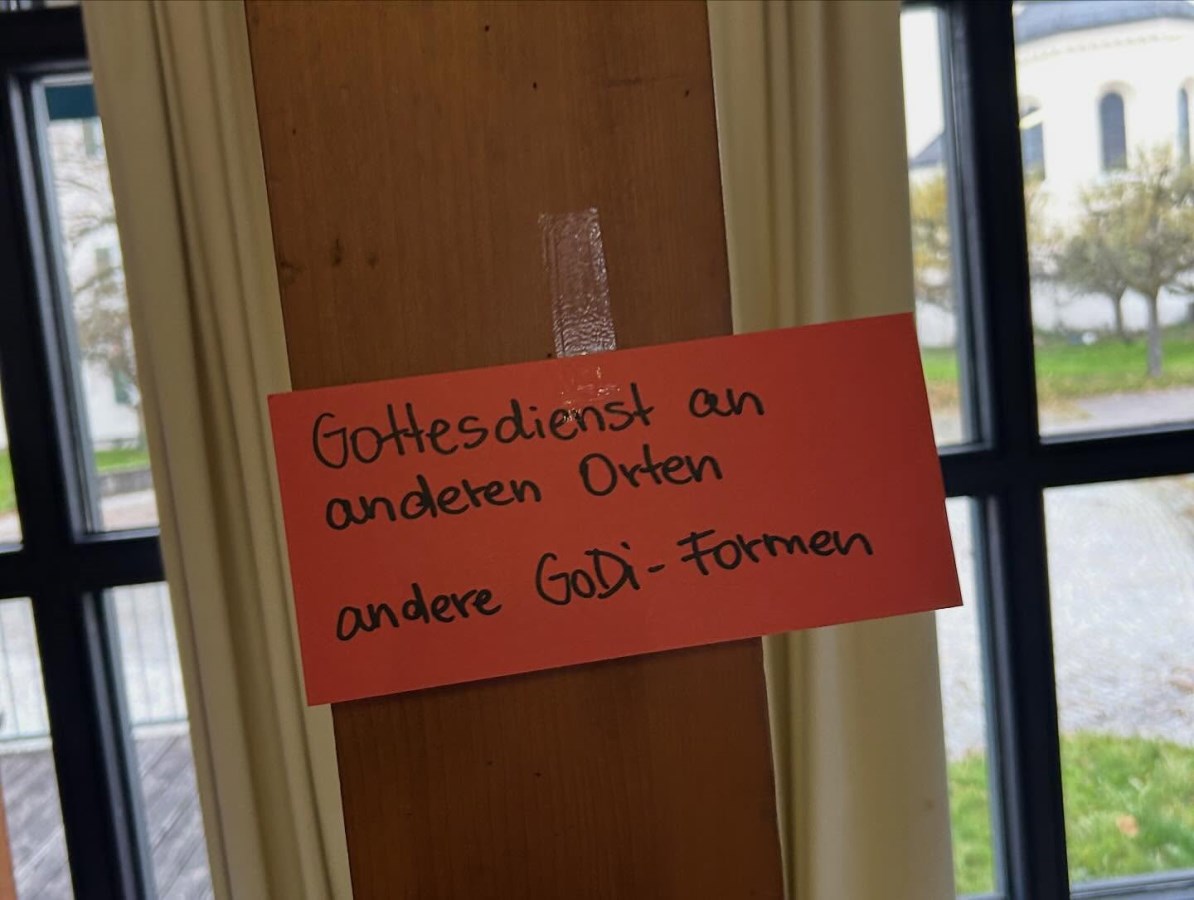 Gottesdienst an
anderen Orten
andere GoDi-Formen